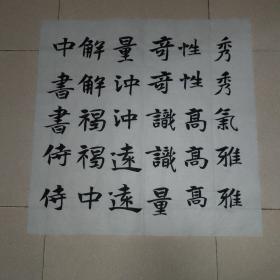 秀秀氣雅雅
性性髙髙髙
奇奇識識量
量沖沖遠遠
解解褐褐中
中書書侍侍